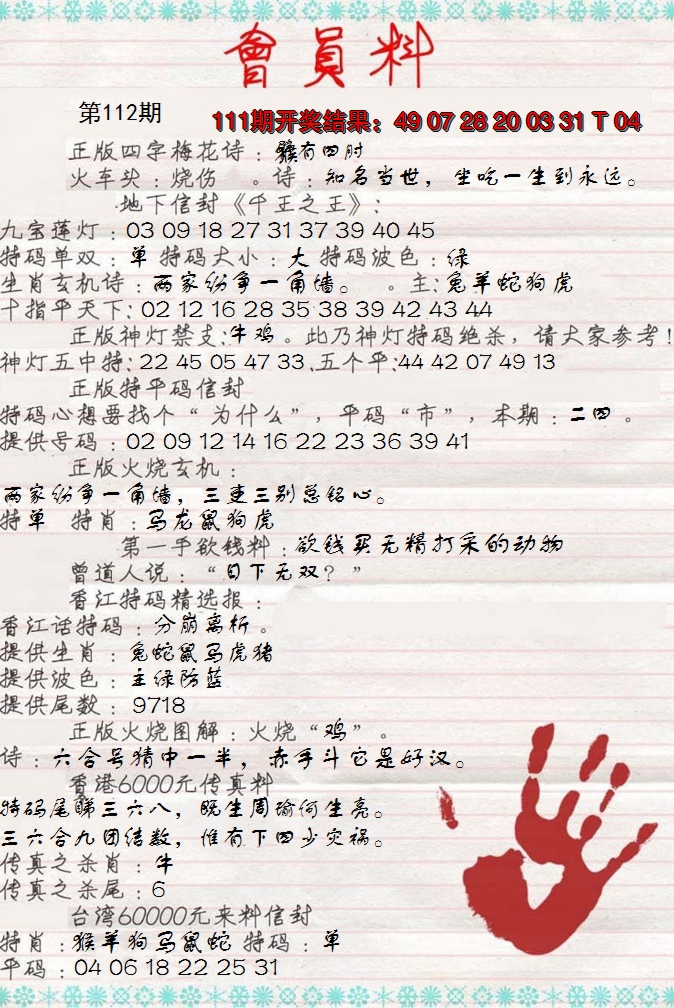 會員料
第112期
111期开奖结果：49 07 28 20 03 31 T 04
正版四字梅花诗：猴有四肘
火车头：烧伤 。诗：知名当世，坐吃一生到永远。
地下信封《千王之王》：
九宝莲灯：03 09 18 27 31 37 39 40 45
特码单双：单 特码大小：大 特码波色：绿
生肖玄机诗：两家纷争一角墙。 。主：兔羊蛇狗虎
十指平天下：02 12 16 28 35 38 39 42 43 44
正版神灯禁支：牛鸡。此乃神灯特码绝杀，请大家参考！
神灯五中特：22 45 05 47 33.五个平：44 42 07 49 13
正版特平码信封
特码心想要找个“为什么”，平码“市”，本期：二四。
提供号码：02 09 12 14 16 22 23 36 39 41
正版火烧玄机：
两家纷争一角墙，三更三别总铭心。
特单 特肖：马龙鼠狗虎
第一手欲钱料：欲钱买无精打采的动物
曾道人说：“日下无双？”
香江特码精选报：
香江话特码：分崩离析。
提供生肖：兔蛇鼠马虎猪
提供波色：主绿防蓝
提供尾数：9718
正版火烧图解：火烧“鸡”。
诗：六合号猜中一半，赤手斗它是好汉。
香港6000元传真料
特码尾睇三六八，既生周瑜何生亮。
三六合九团结数，惟有下四少灾祸。
传真之杀肖：牛
传真之杀尾：6
台湾60000元来料信封
特肖：猴羊狗马鼠蛇 特码：单
平码：04 06 18 22 25 31